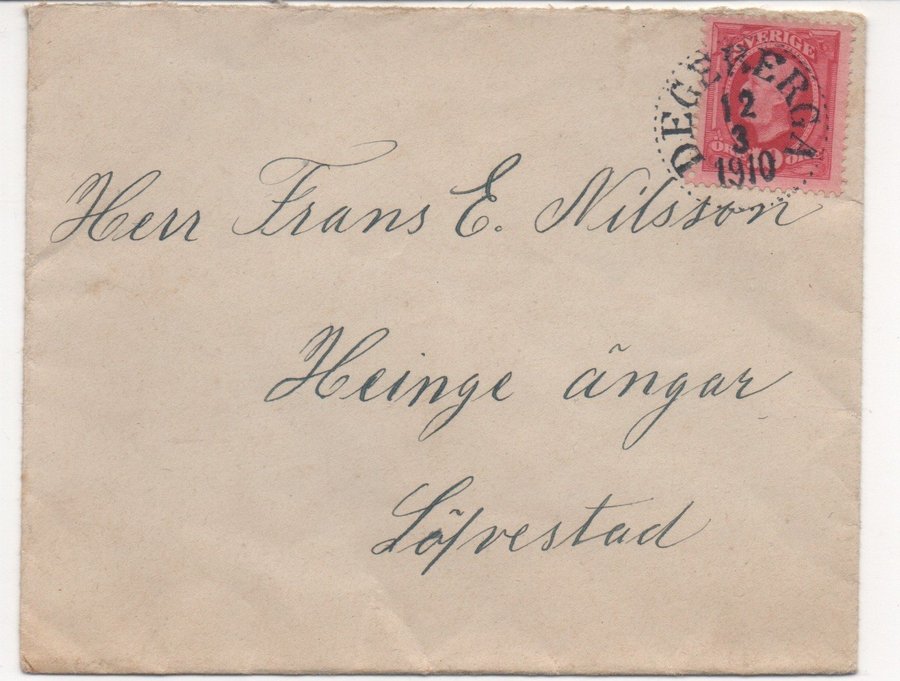 SVERIGE
DEGEBERGA
12
3
1910
Herr Frans E. Nilsson
Heinge ängar
Löfvestad